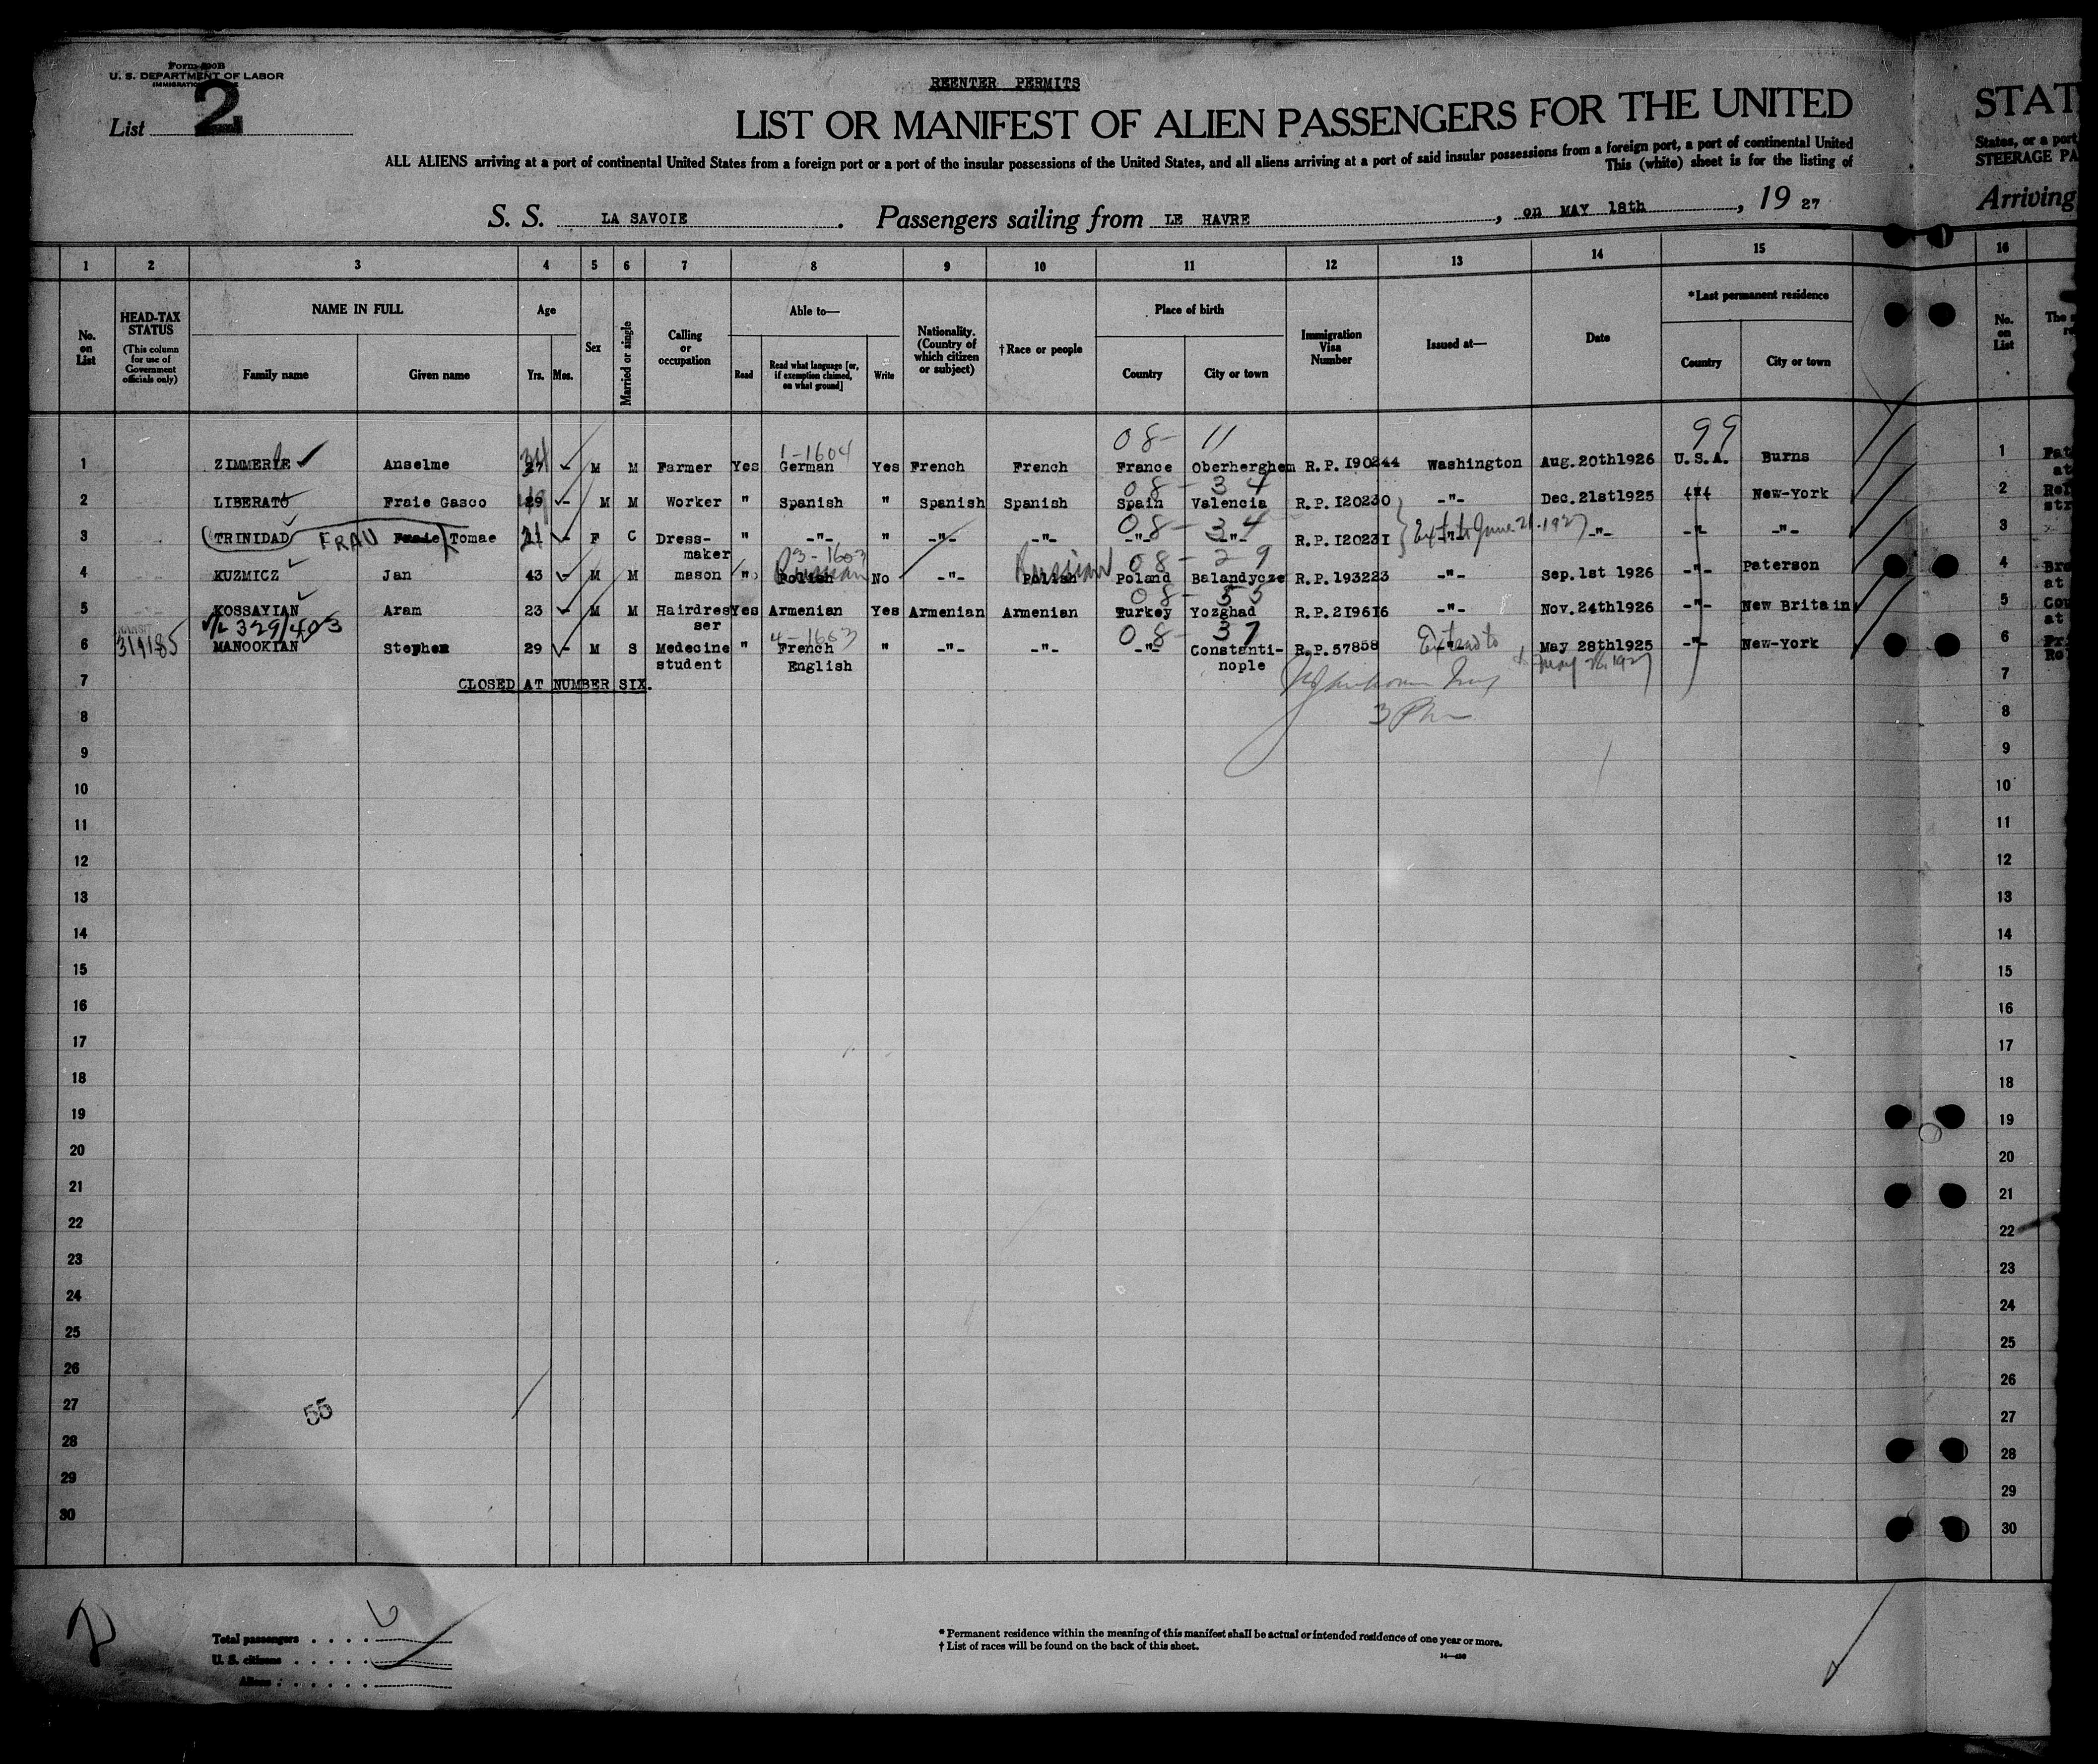 Form 500B
U. S. DEPARTMENT OF LABOR
IMMIGRATION
List 2
REENTER PERMITS
LIST OR MANIFEST OF ALIEN PASSENGERS FOR THE UNITED
STAT
ALL ALIENS arriving at a port of continental United States from a foreign port or a port of the insular possessions of the United States, and all aliens arriving at a port of said insular possessions from a foreign port, a port of continental United
States, or a port
This (white) sheet is for the listing of
STEERAGE PA
S. S. LA SAVOIE. Passengers sailing from LE HAVRE, on MAY 18th, 19 27
Arriving
1 2 3 4 5 6 7 8 9 10 11 12 13 14 15 16
No. on List
HEAD-TAX STATUS
(This column for use of Government officials only)
NAME IN FULL
Family name Given name
Age
Yrs. Mos.
Sex
Married or single
Calling or occupation
Able to—
Read Read what language [or, if exemption claimed, on what ground] Write
Nationality. (Country of which citizen or subject)
†Race or people
Place of birth
Country City or town
Immigration Visa Number
Issued at—
Date
*Last permanent residence
Country City or town
No. on List
The
1-1604 08- 11 99
1 ZIMMERLE Anselme 34 - M M Farmer Yes German Yes French French France Oberherghem R.P. I90244 Washington Aug.20th1926 U.S.A. Burns 1
08-34
2 LIBERATO Fraie Gasco 29 - M M Worker " Spanish " Spanish Spanish Spain Valencia R.P. I20230 -"- Dec.21st1925 -"- New-York 2
08-34
3 TRINIDAD FRAU Fraie Tomae 21 - F C Dress-maker " -"- " -"- -"- -"- -"- R.P. I2023I -"- Ext to June 21-1927 -"- -"- -"- 3
3-1603 08-29
4 KUZMICZ Jan 43 - M M mason " Polish Russian No -"- Polish Russian Poland Balandycze R.P. 193223 -"- Sep.1st 1926 -"- Paterson 4
08-55
5 KOSSAYIAN Aram 23 - M M Hairdresser Yes Armenian Yes Armenian Armenian Turkey Yozghad R.P. 2I96I6 -"- Nov.24th1926 -"- New Britain 5
329/403
4-1603 08-37
6 319185 MANOOKIAN Stephen 29 - M S Medecine student " French English " -"- -"- -"- Constantinople R.P. 57858 -"- Extend to May 28th1925 -"- New-York 6
May 28 1927
7 CLOSED AT NUMBER SIX. 7
8 3 Pm 8
9 9
10 10
11 11
12 12
13 13
14 14
15 15
16 16
17 17
18 18
19 19
20 20
21 21
22 22
23 23
24 24
25 25
26 26
27 55 27
28 28
29 29
30 30
2
Total passengers . . . . 6
U. S. citizens . . . . .
Aliens . . . . . .
* Permanent residence within the meaning of this manifest shall be actual or intended residence of one year or more.
† List of races will be found on the back of this sheet.